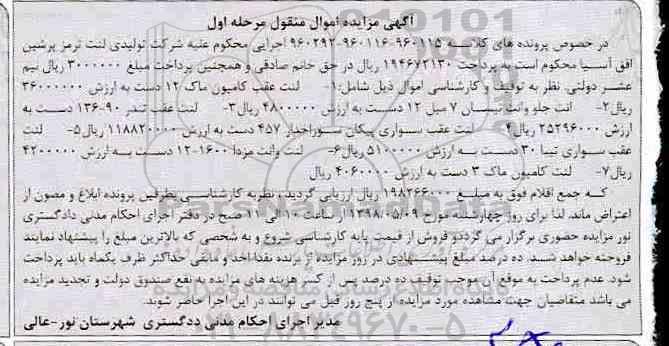 آگهی مزایده اموال منقول مرحله اول
در خصوص پرونده های کلاسه ۹۶۰۱۱۵-۹۶۰۱۱۶-۹۶۰۲۹۲ اجرایی محکوم علیه شرکت تولیدی لنت ترمز پرشین
افق آسیا محکوم است به پرداخت ۱۹۴۶۷۲۱۳۰ ریال در حق خانم صادقی و همچنین پرداخت مبلغ ۳۰۰۰۰۰۰ ریال نیم
عشر دولتی. نظر به توقیف و کارشناسی اموال ذیل شامل:۱- لنت عقب کامیون ماک ۱۲ دست به ارزش ۳۶۰۰۰۰۰۰
ریال۲- لنت جلو وانت نیسان ۷ میل ۱۲ دست به ارزش ۴۸۰۰۰۰۰ ریال۳- لنت عقب تندر ۹۰-۱۳۶ دست به
ارزش ۲۵۲۹۶۰۰۰ ریال۴- لنت عقب سواری پیکان سوراخدار ۴۵۷ دست به ارزش ۱۱۸۸۲۰۰۰۰ ریال۵- لنت
عقب سواری تیبا ۳۰ دست به ارزش ۵۱۰۰۰۰۰ ریال۶- لنت وانت مزدا ۱۶۰۰-۱۲ دست به ارزش ۴۲۰۰۰۰۰
ریال۷- لنت کامیون ماک ۳ دست به ارزش ۴۰۶۰۰۰۰ ریال
که جمع اقلام فوق به مبلغ ۱۹۸۲۶۶۰۰۰ ریال ارزیابی گردید و نظریه کارشناسی بطرفین پرونده ابلاغ و مصون از
اعتراض ماند، لذا برای روز چهارشنبه مورخ ۱۳۹۸/۰۵/۰۹ از ساعت ۱۰ الی ۱۱ صبح در دفتر اجرای احکام مدنی دادگستری
نور مزایده حضوری برگزار می گردد و فروش از قیمت پایه کارشناسی شروع و به شخصی که بالاترین مبلغ را پیشنهاد نمایند
فروخته خواهد شد. ده درصد مبلغ پیشنهادی در روز مزایده از برنده نقدا اخذ و مابقی حداکثر ظرف یکماه باید پرداخت
شود. عدم پرداخت به موقع آن موجب توقیف ده درصد پس از کسر هزینه های مزایده به نفع صندوق دولت و تجدید مزایده
می باشد متقاضیان جهت مشاهده مورد مزایده از پنج روز قبل می توانند در این اجرا حاضر شوند.
مدیر اجرای احکام مدنی ددگستری شهرستان نور-عالی
ParsNamadData
۰۲۱-۸۸۳۴۹۶۷۰-۵